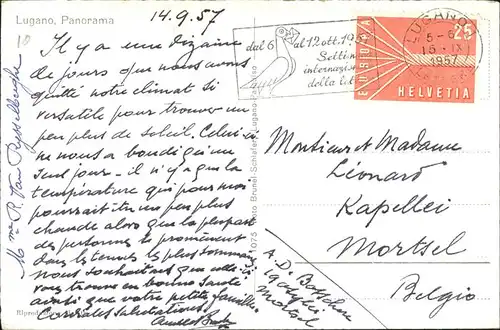 Lugano, Panorama
14.9.57
10
Il y a une dizaine
de jours que nous avons
quitté votre climat si
versatile pour trouver un
peu plus de soleil. Celui-ci
ne nous a boudé qu'un
seul jour - il n'y a que la
température qui pour moi
pourrait être un peu plus
chaude alors que la plupart
des personnes se promènent
dans les tenues les plus sommaires
nous souhaitons que celle-ci
vous trouve en bonne santé
ainsi que votre petite famille.
Cordiales Salutations
Mme R. Van Rysselberghe
dal 6 al 12 ott. 19
Settim
internazion
della let
LUGANO
15. IX
1957
EUROPA
25
HELVETIA
Monsieur Madame
Léonard
Kapellei
Mortsel
Belgio
A. D.